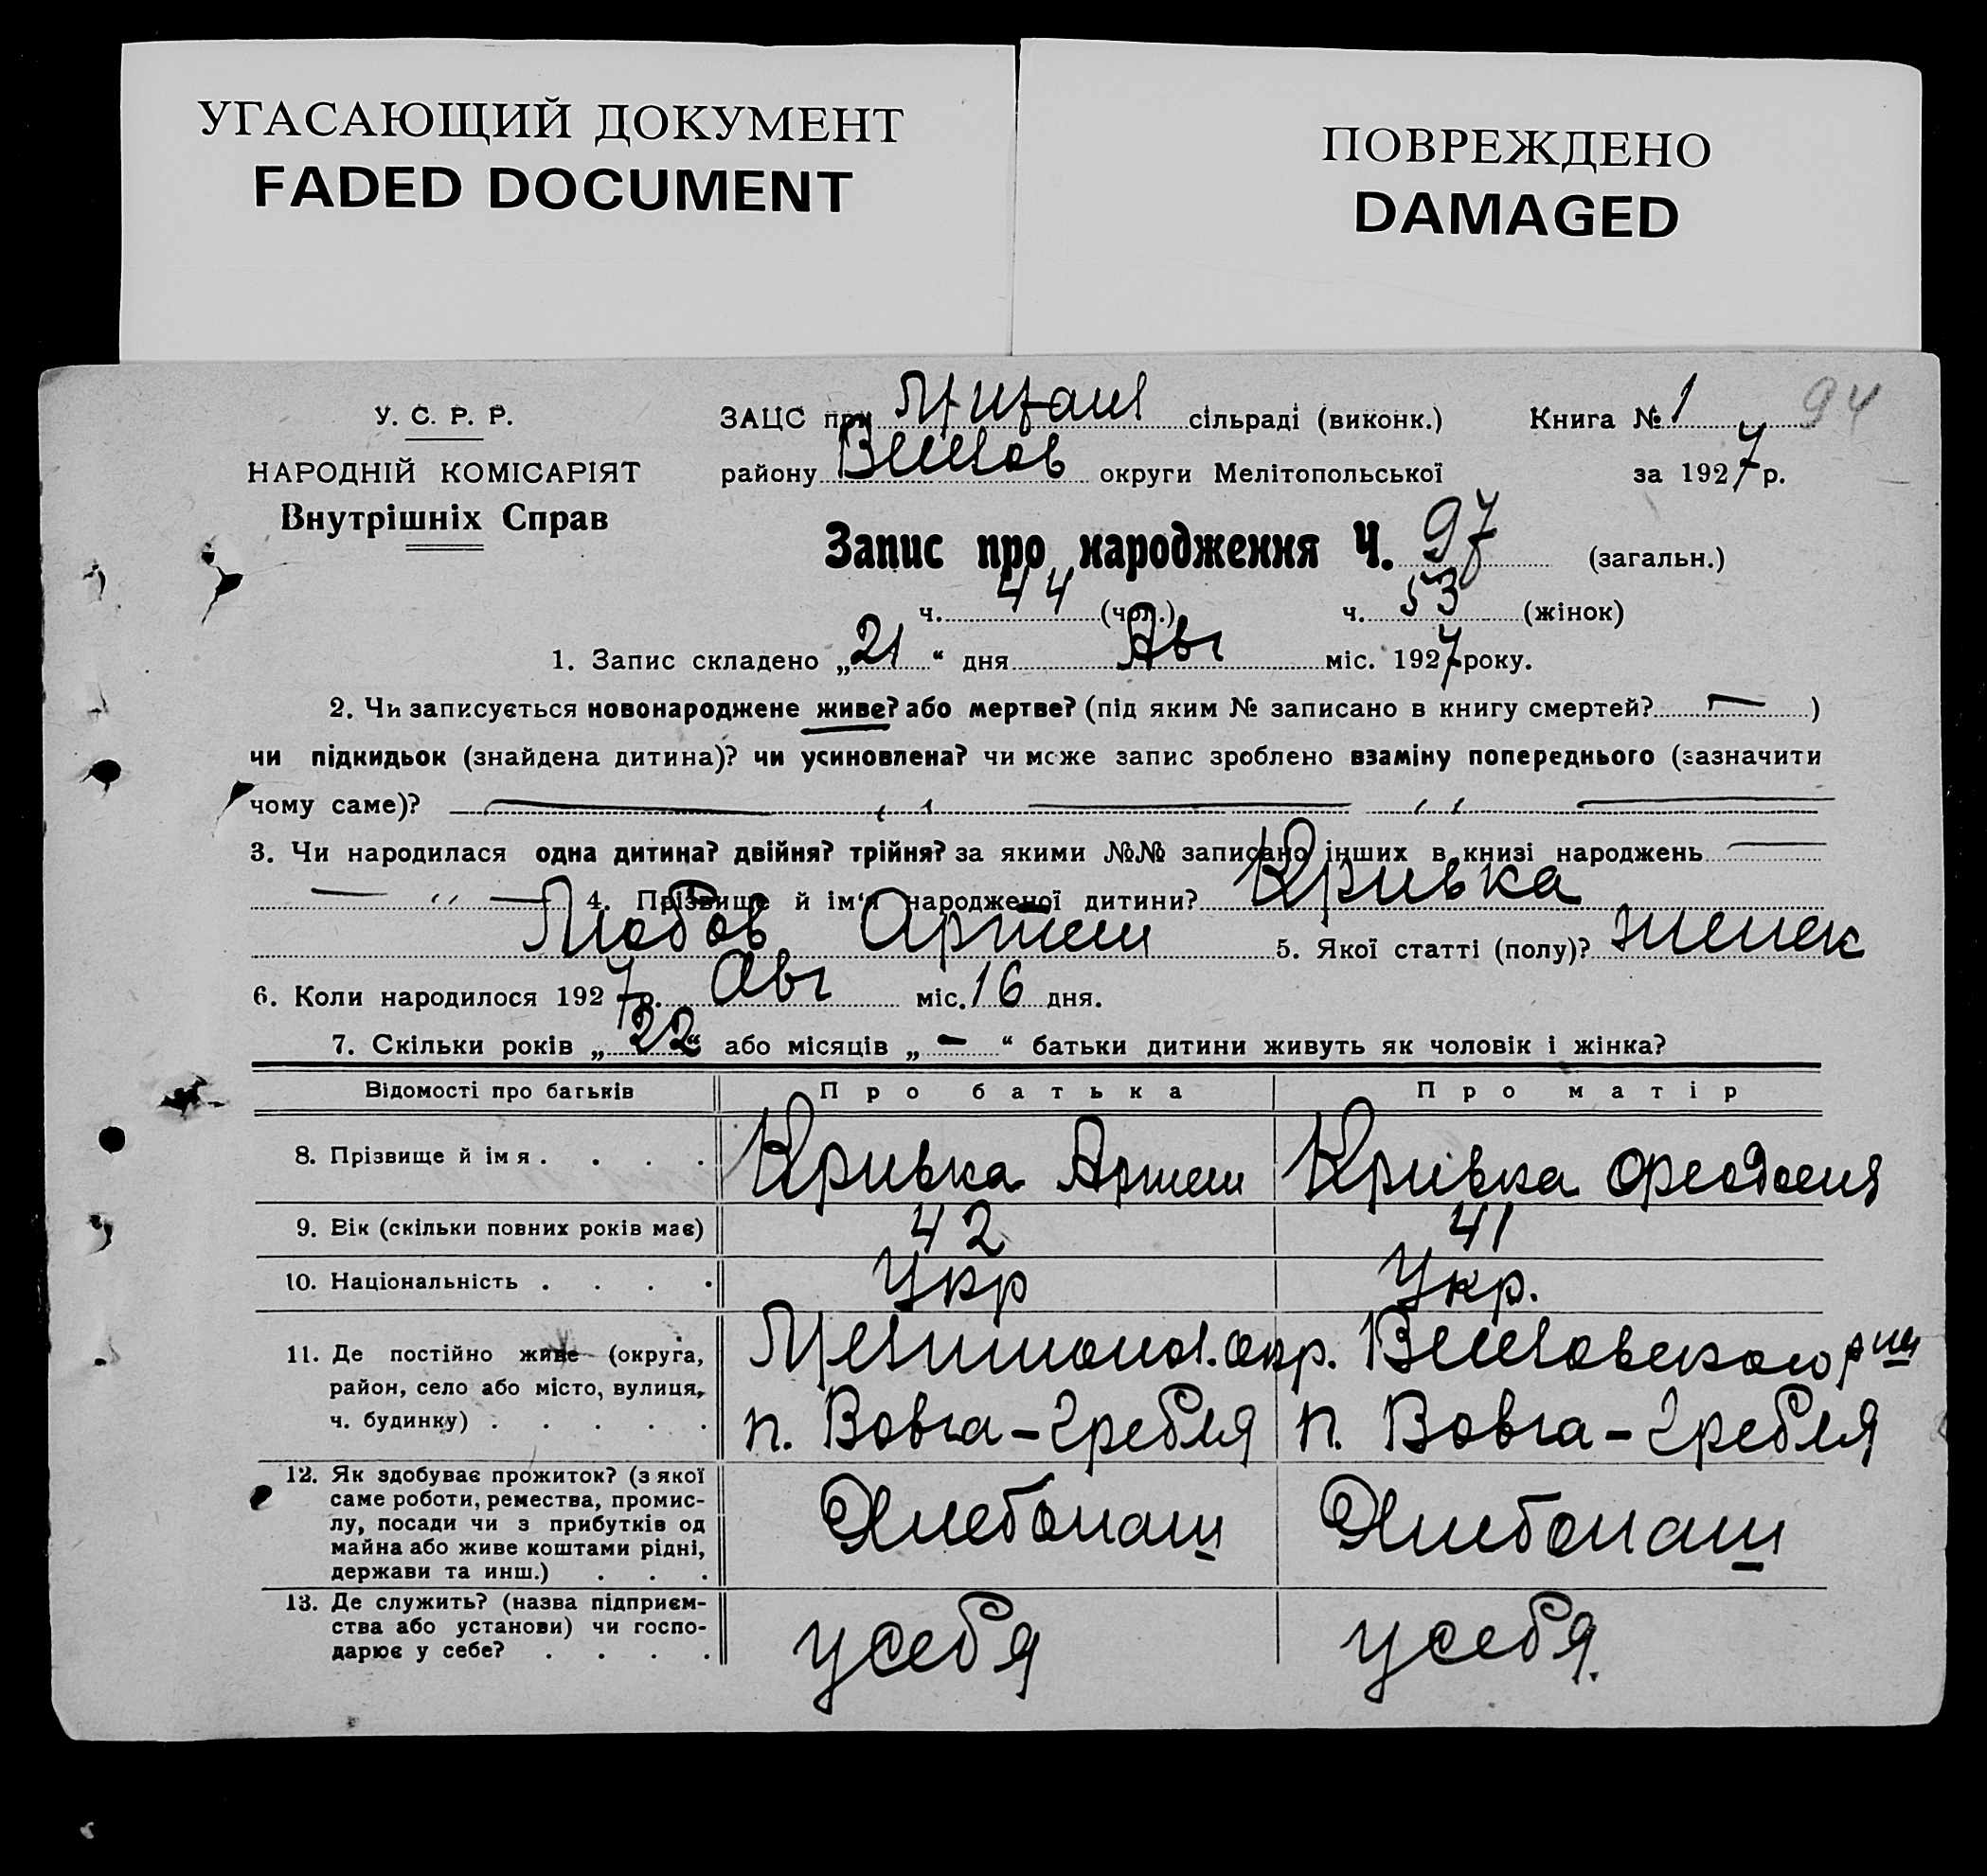 УГАСАЮЩИЙ ДОКУМЕНТ
FADED DOCUMENT
ПОВРЕЖДЕНО
DAMAGED
У. С. Р. Р.
НАРОДНІЙ КОМІСАРІЯТ
Внутрішніх Справ
ЗАЦС при сільраді (виконк.) Книга № 1 94
району округи Мелітопольської за 1927 р.
Запис про народження Ч. 97 (загальн.)
ч. 44 (чол.) ч. 53 (жінок)
1. Запис складено „21“ дня Авг міс. 1927 року.
2. Чи записується новонароджене живе? або мертве? (під яким № записано в книгу смертей? — )
чи підкидьок (знайдена дитина)? чи усиновлена? чи може запис зроблено взаміну попереднього (зазначити
чому саме)? — „ — „ —
3. Чи народилася одна дитина? двійня? трійня? за якими №№ записано інших в книзі народжень —
— „ — 4. Прізвище й ім'я народженої дитини? Кривка
Любов Артем 5. Якої статті (полу)? женск
6. Коли народилося 1927 р. Авг міс. 16 дня.
7. Скільки років „22“ або місяців „—“ батьки дитини живуть як чоловік і жінка?
Відомості про батьків Про батька Про матір
8. Прізвище й імя . . . . Кривка Артем Кривка Феодосия
9. Вік (скільки повних років має) 42 41
10. Національність . . . . Укр Укр.
11. Де постійно живе (округа, район, село або місто, вулиця, ч. будинку) . . . . . Мелитопол. окр. Веселовского р
п. Вовча-Гребля п. Вовча-Гребля
12. Як здобуває прожиток? (з якої саме роботи, ремества, промислу, посади чи з прибутків од майна або живе коштами рідні, держави та инш.) . . . Хлебопаш Хлебопаш
13. Де служить? (назва підприємства або установи) чи господарює у себе? . . . . у себя у себя.